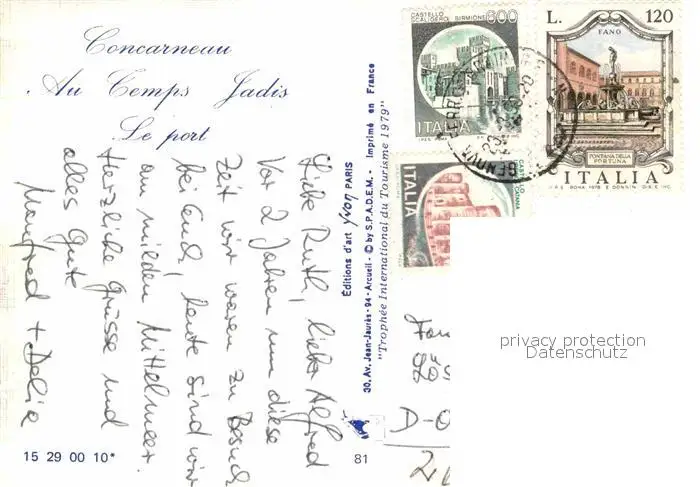 Concarneau
Au Temps Jadis
Le port
Liebe Ruth, lieber Alfred
Vor 2 Jahren um diese
Zeit wir waren zu Besuch
bei Euch, heute sind wir
am milden Mittelmeer.
Herzliche Grüsse und
alles Gute
Manfred + Delia
15 29 00 10*
81
Editions d'art Yvon PARIS
30, Av. Jean-Jaurès - 94 - Arcueil - © by S.P.A.D.E.M. - Imprimé en France
"Trophée International du Tourisme 1979"
CASTELLO
SCALIGERO SIRMIONE
600
ITALIA
L. 120
FANO
FONTANA DELLA
FORTUNA
ITALIA
ITALIA
GENOVA
D-O
privacy protection
Datenschutz